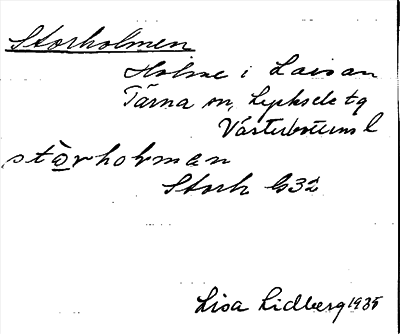 Storholmen
Holme i Laisan
Tärna sn, Lycksele tg
Västerbottens l
stòrholman
Stork G32
Lisa Lidberg 1935